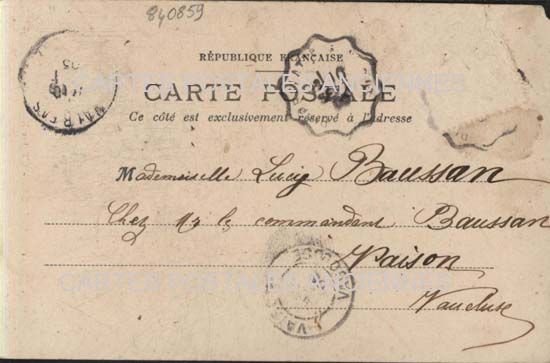 840859
RÉPUBLIQUE FRANÇAISE
CARTE POSTALE
Ce côté est exclusivement réservé à l'adresse
Mademoiselle Lucie Baussan
Chez Mr le commandant Baussan
Vaison
Vaucluse
CARTES POSTALES ANCIENNES
CARTES POSTALES ANCIENNES